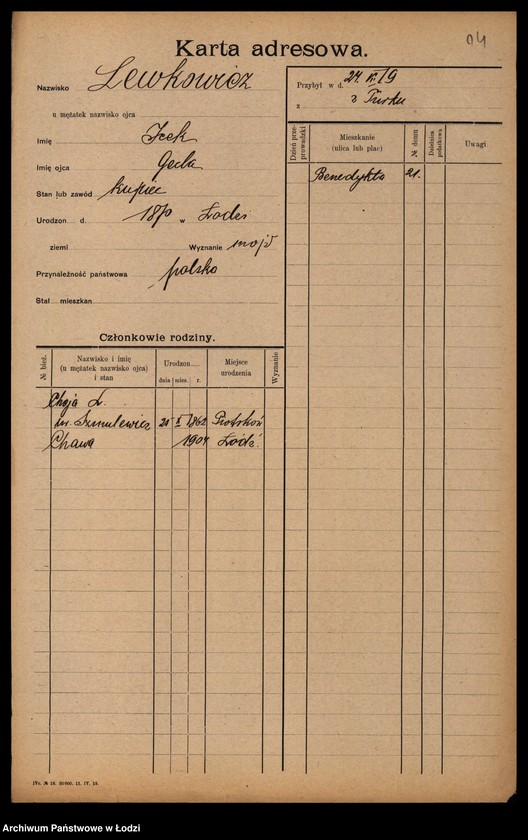 04
Karta adresowa.
Nazwisko Lewkowicz
u mężatek nazwisko ojca
Imię Icek
Imię ojca
Stan lub zawód kupiec
Urodzon d. w Łodzi
ziemi Wyznanie mojż
Przynależność państwowa polska
Stał. mieszkan
Przybył w d. 24 19
z z Turku
Dzień przeprowadzki
Mieszkanie (ulica lub plac)
№ domu
Dzielnica podatkowa
Uwagi
Benedykta 21.
Członkowie rodziny.
№ bież.
Nazwisko i imię
(u mężatek nazwisko ojca)
i stan
Urodzon
dnia mies. r.
Miejsce
urodzenia
Wyznanie
Chaja L.
Szmulewicz 20 X 1862 Piotrków
Chawa 1904 Łódź.
Archiwum Państwowe w Łodzi